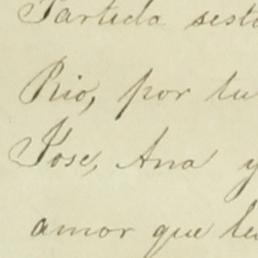 Partido sesto
Rio, por tu
Jose, Ana y
amor que le